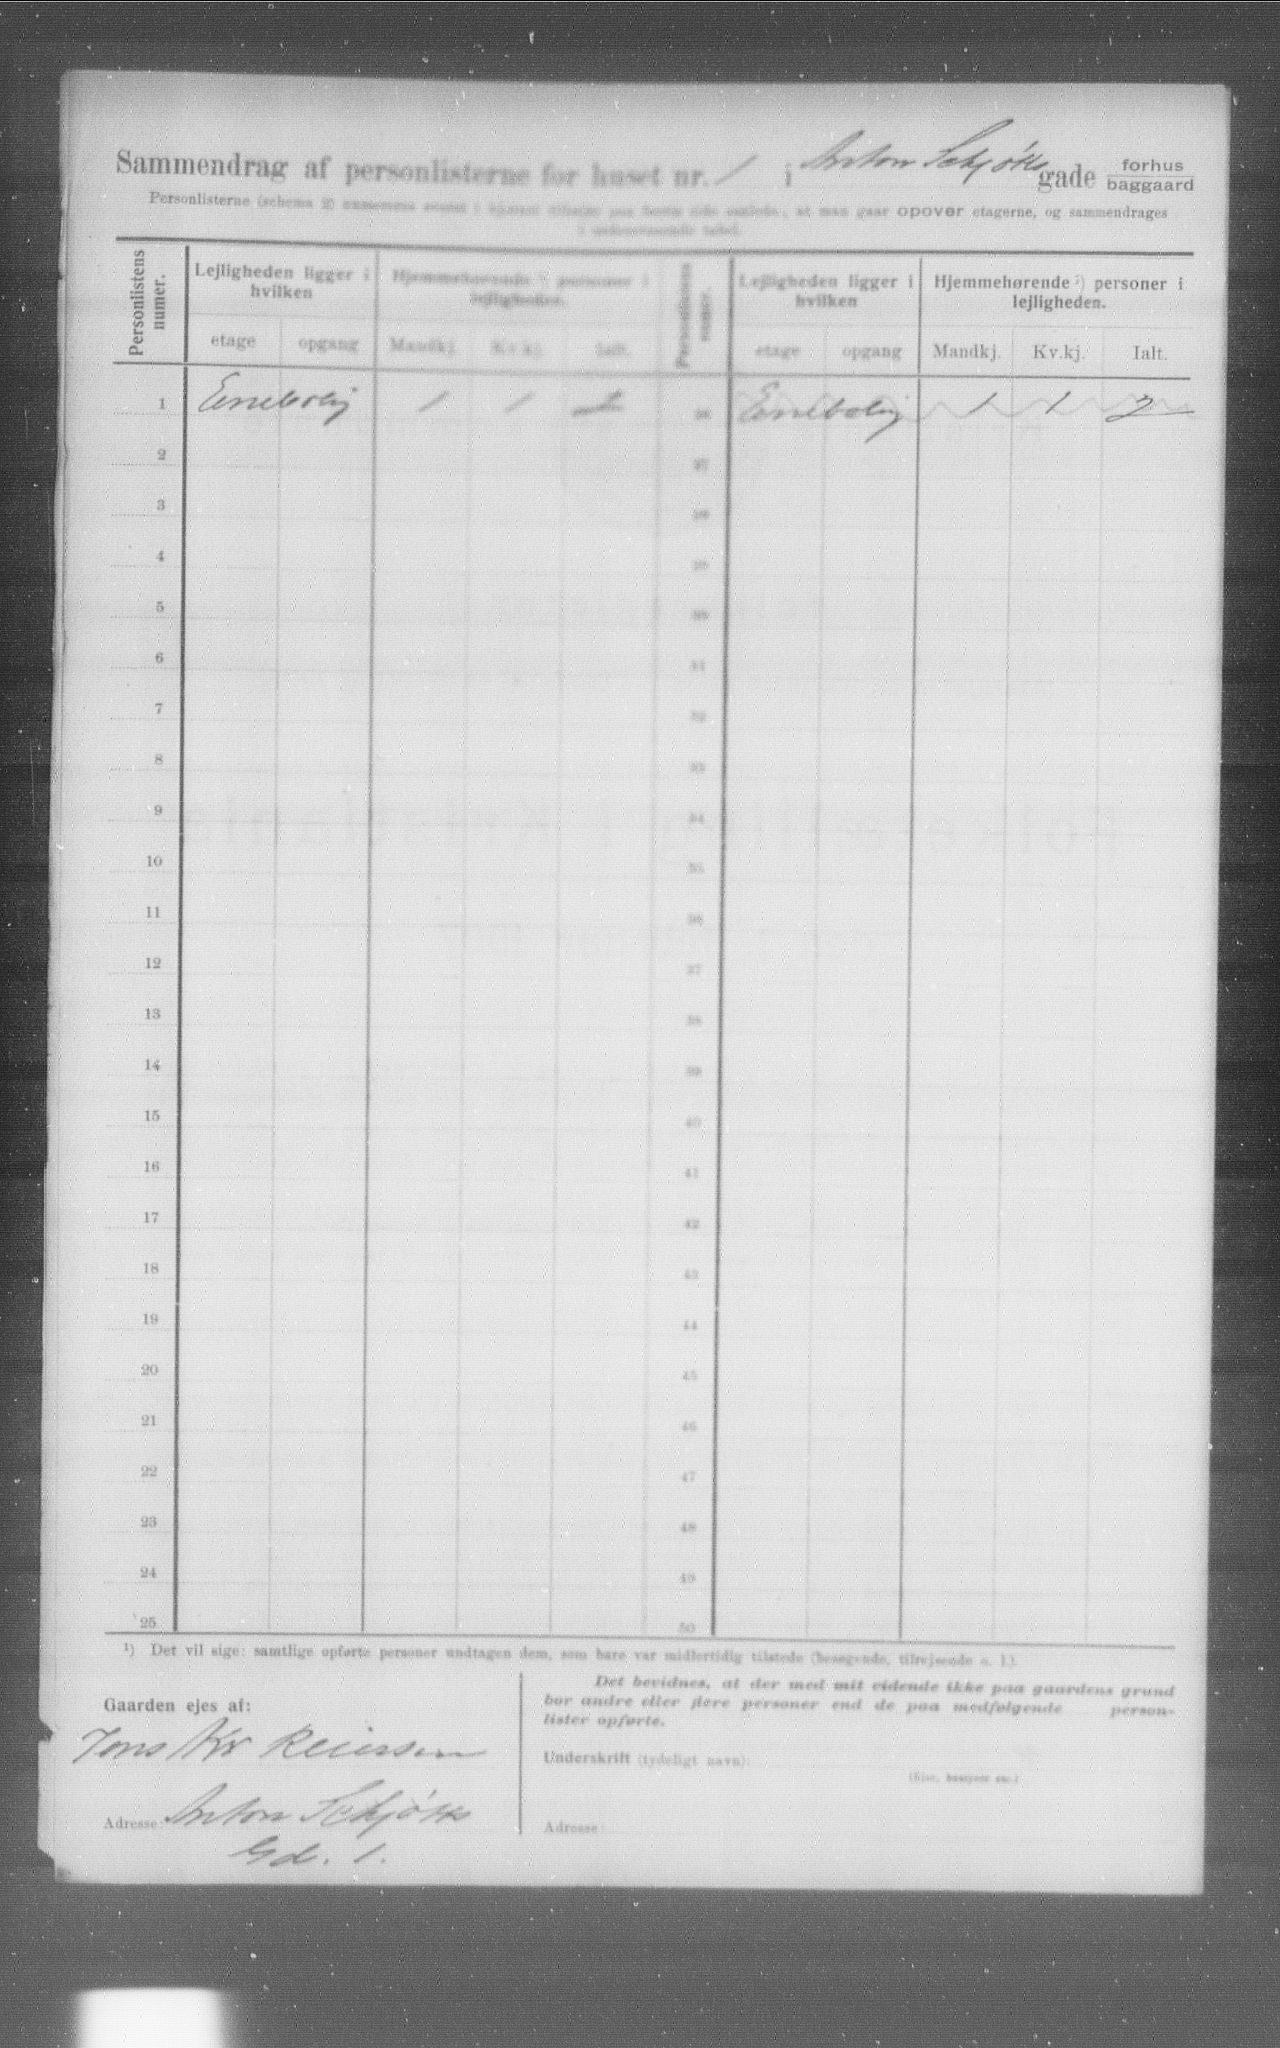 Sammendrag af personlisterne for huset nr. 1 i Anton Schjøths gade forhus
baggaard
Personlisterne (schema 2) at man gaar opover etagerne, og sammendrages
i nedenstaaende tabel.
Personlistens numer. Lejligheden ligger i hvilken Hjemmehørende ¹) personer i lejligheden. Personlistens numer. Lejligheden ligger i hvilken Hjemmehørende ¹) personer i lejligheden.
etage opgang Mandkj. Kv.kj. Ialt. etage opgang Mandkj. Kv.kj. Ialt.
1 Enebolig 1 1 2 26 Enebolig 1 1 2
2 27
3 28
4 29
5 30
6 31
7 32
8 33
9 34
10 35
11 36
12 37
13 38
14 39
15 40
16 41
17 42
18 43
19 44
20 45
21 46
22 47
23 48
24 49
25 50
¹) Det vil sige: samtlige opførte personer undtagen dem, som bare var midlertidig tilstede (besøgende, tilrejsende o. l.).
Gaarden ejes af:
Jens Kr Reiersen
Adresse: Anton Schjøths
Gd. 1.
Det bevidnes, at der med mit vidende ikke paa gaardens grund
bor andre eller flere personer end de paa medfølgende person-
lister opførte.
Underskrift (tydeligt navn):
(Eier, bestyrer etc.)
Adresse: